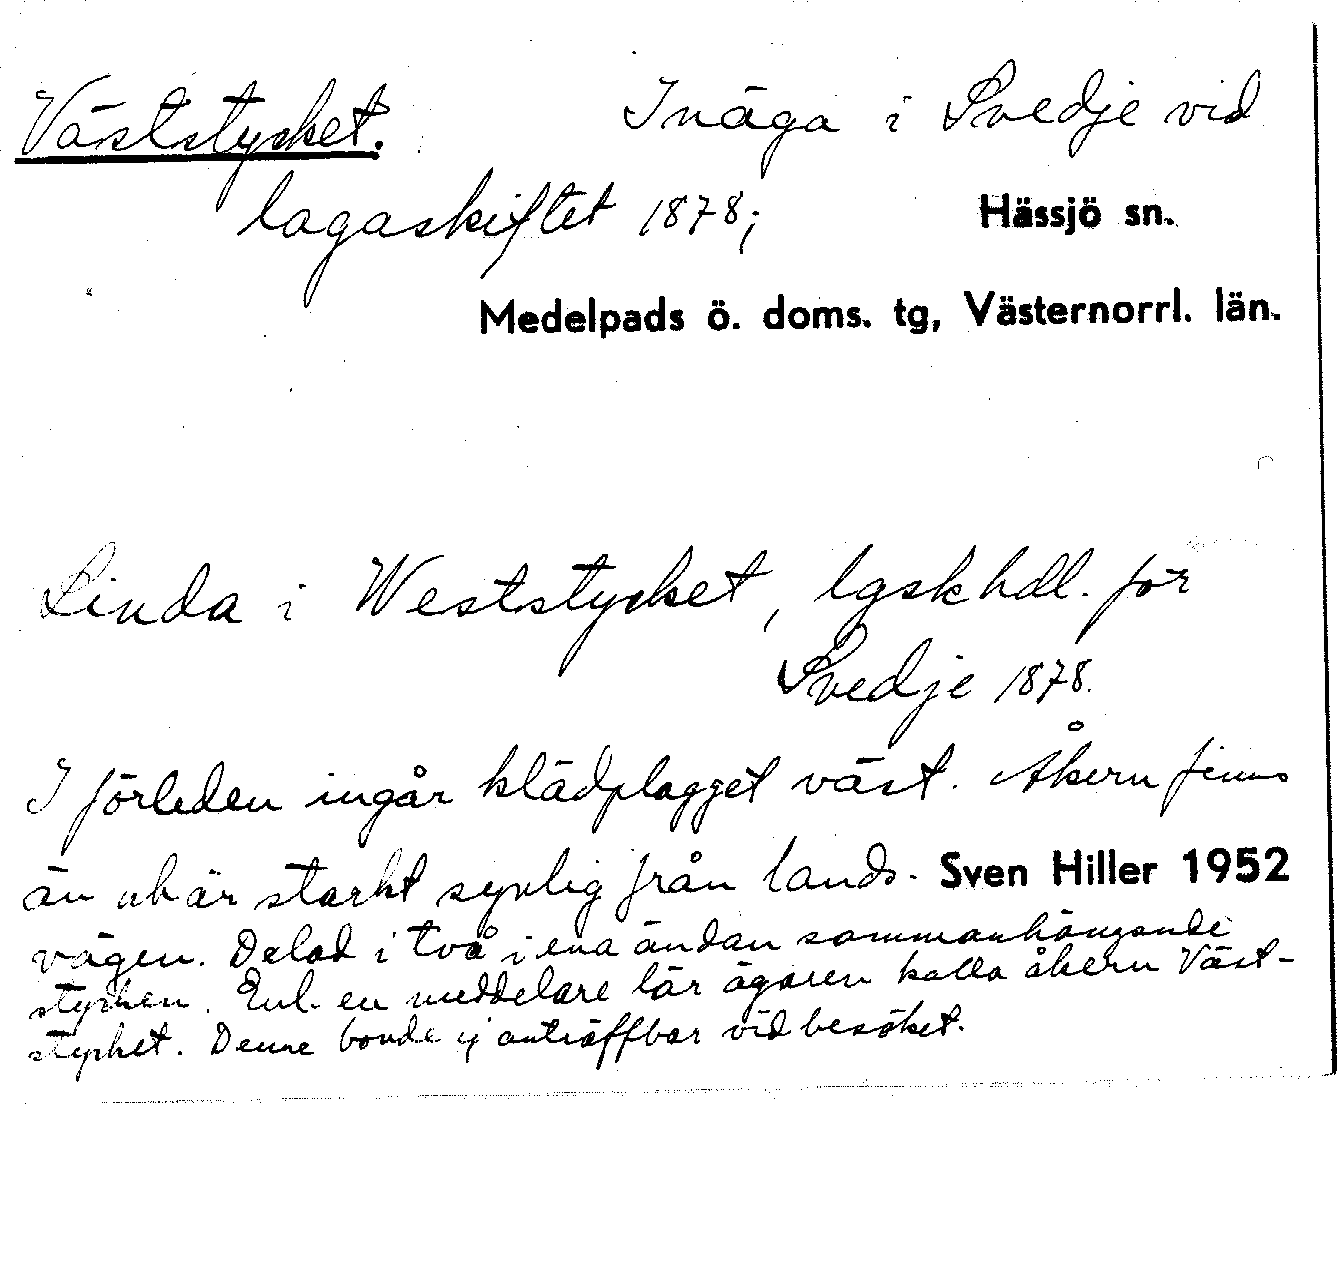 Väststycket. Inäga i Svedje vid
lagaskiftet 1878; Hässjö sn.
Medelpads ö. doms. tg, Västernorrl. län.
Linda i Weststycket, lgskhdl. för
Svedje 1878.
I förleden ingår klädplagget väst. Åkern finns
än och är starkt synlig från lands- Sven Hiller 1952
vägen. Delad i två i ena ändan sammanhängande
stycken. Enl. en meddelare lär ägaren kalla åkern Väst-
stycket. Denne bonde ej anträffbar vid besöket.